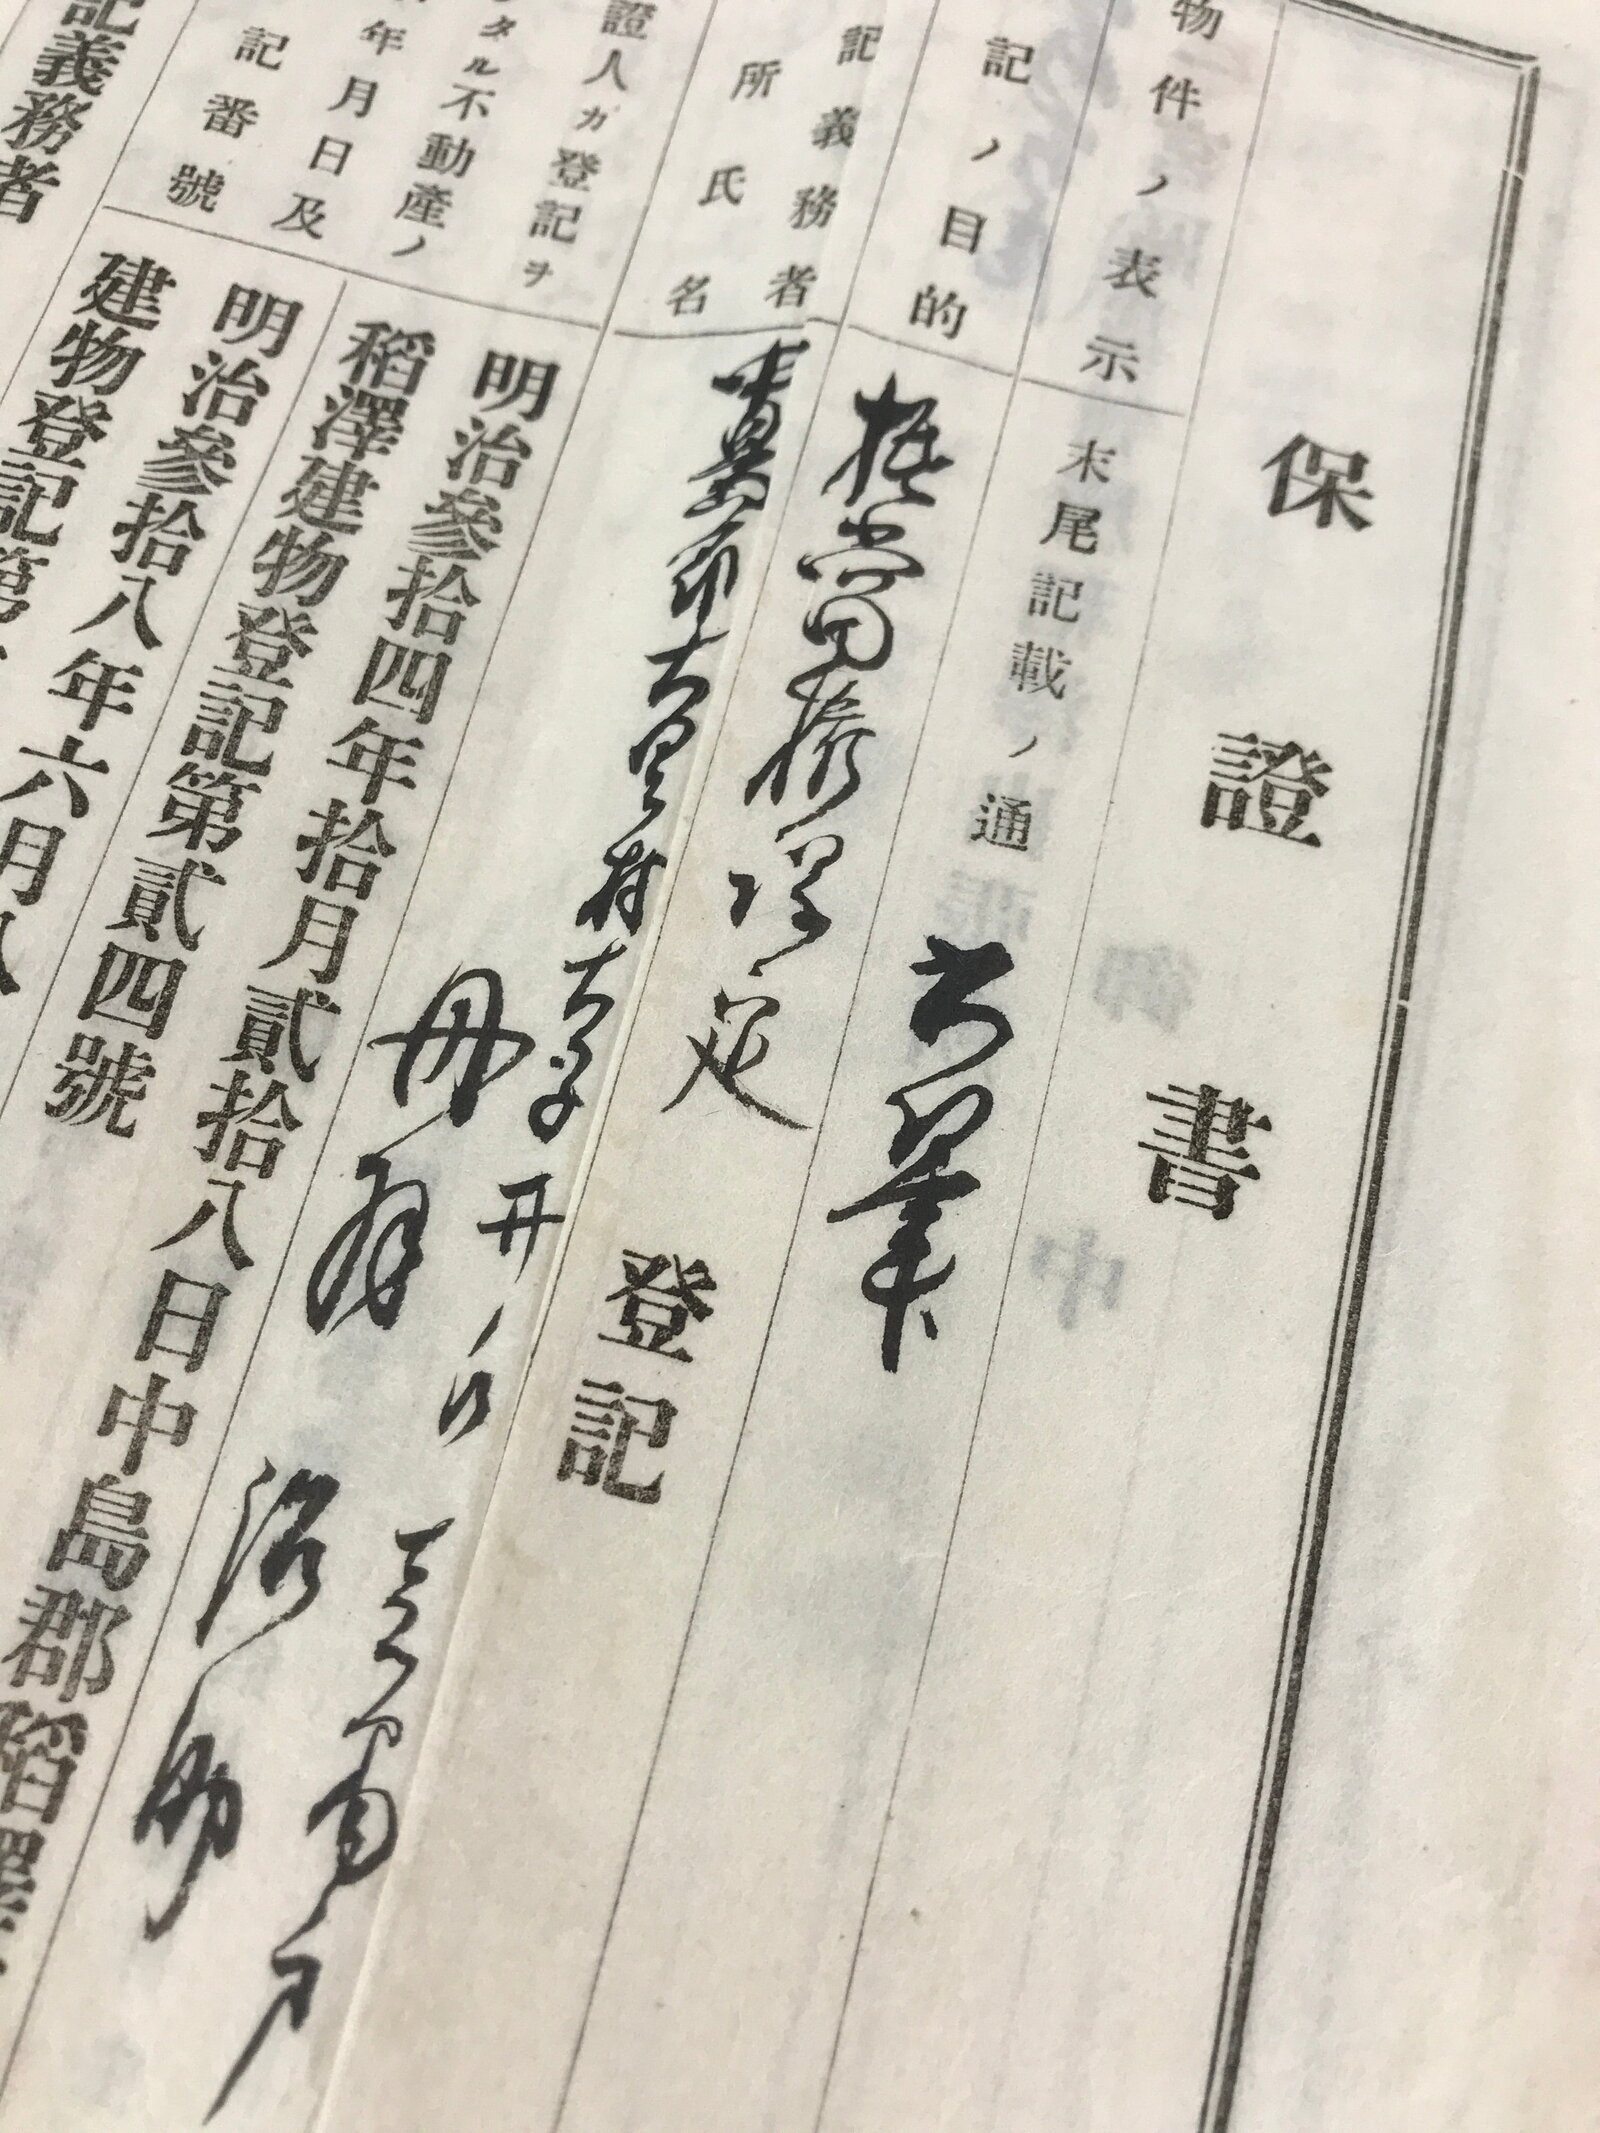 保證書
物件ノ表示
末尾記載ノ通
六筆
記ノ目的
抵當權設定
登記
記義務者
所氏名
大里村大字
丹羽
證人ガ登記ヲ
タル不動產ノ
年月日及
記番號
明治參拾四年拾月貳拾八日中島郡稻澤
稻澤建物登記第貳四號
明治參拾八年六月
建物登記第
記義務者